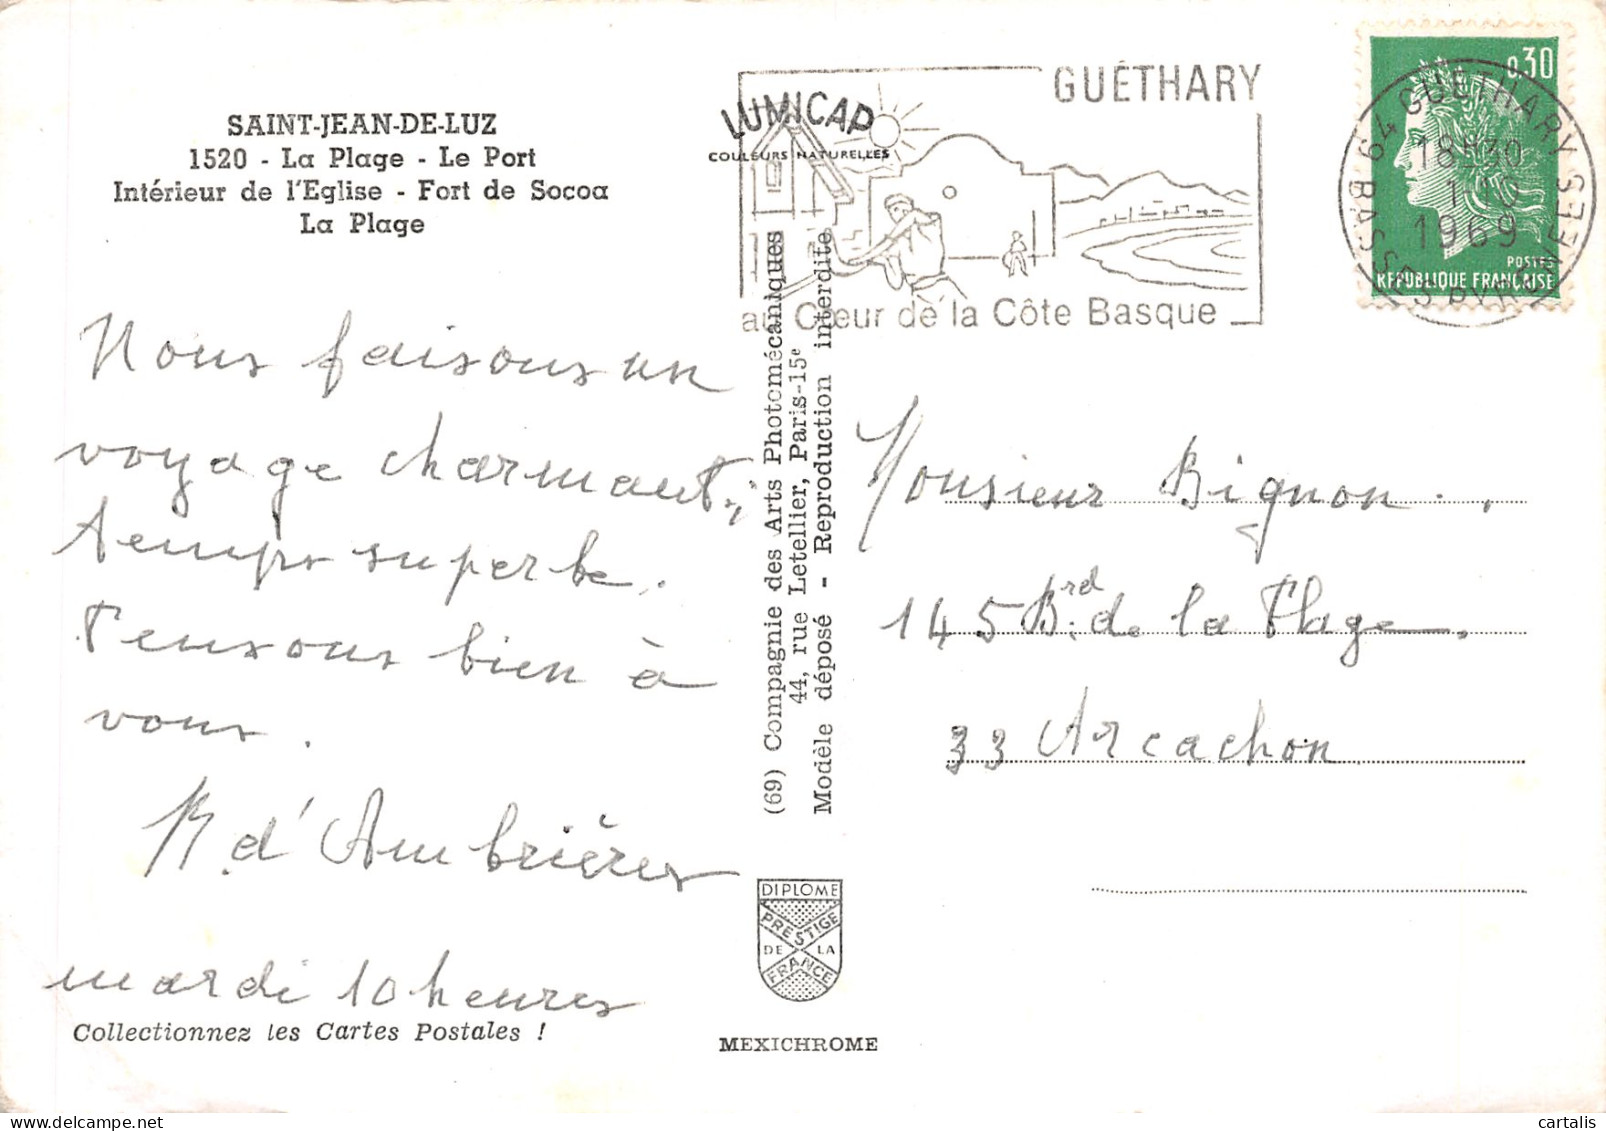 SAINT-JEAN-DE-LUZ
1520 - La Plage - Le Port
Intérieur de l'Eglise - Fort de Socoa
La Plage
Nous faisons un
voyage charmant,
temps superbe.
Pensons bien à
vous.
R. d'Ambrières
mardi 10 heures
Collectionnez les Cartes Postales !
LUMICAP
COULEURS NATURELLES
GUÉTHARY
au Cœur de la Côte Basque
(69) Compagnie des Arts Photomécaniques
44, rue Letellier, Paris-15e
Modèle déposé - Reproduction interdite
DIPLOME
PRESTIGE
DE LA
FRANCE
MEXICHROME
0,30
POSTES
REPUBLIQUE FRANÇAISE
64 GUETHARY
18H30
1-10
1969
BASSES PYRENEES
Monsieur Bignon.
145 Brd. de la Plage.
33 Arcachon
cartalis